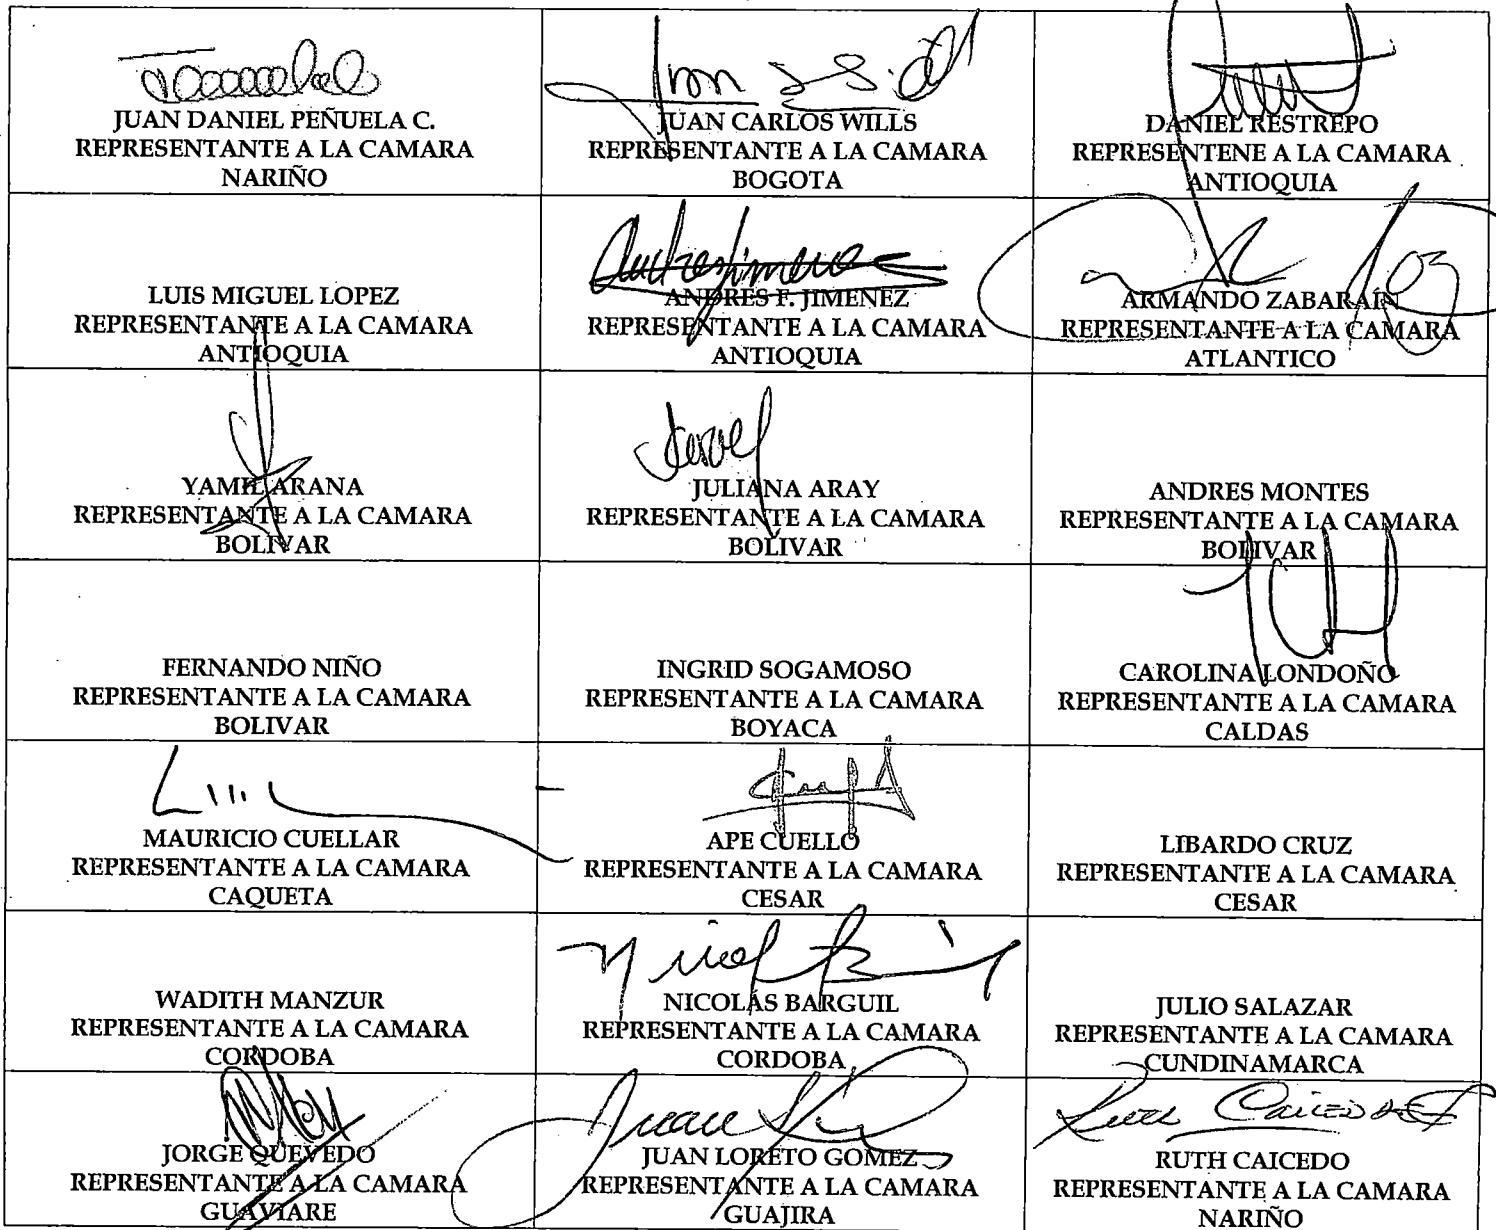 JUAN DANIEL PEÑUELA C.
REPRESENTANTE A LA CAMARA
NARIÑO
JUAN CARLOS WILLS
REPRESENTANTE A LA CAMARA
BOGOTA
DANIEL RESTREPO
REPRESENTENE A LA CAMARA
ANTIOQUIA
LUIS MIGUEL LOPEZ
REPRESENTANTE A LA CAMARA
ANTIOQUIA
Andres Jimenez
ANDRES F. JIMENEZ
REPRESENTANTE A LA CAMARA
ANTIOQUIA
ARMANDO ZABARAIN
REPRESENTANTE A LA CAMARA
ATLANTICO
YAMIL ARANA
REPRESENTANTE A LA CAMARA
BOLIVAR
JULIANA ARAY
REPRESENTANTE A LA CAMARA
BOLIVAR
ANDRES MONTES
REPRESENTANTE A LA CAMARA
BOLIVAR
FERNANDO NIÑO
REPRESENTANTE A LA CAMARA
BOLIVAR
INGRID SOGAMOSO
REPRESENTANTE A LA CAMARA
BOYACA
CAROLINA LONDOÑO
REPRESENTANTE A LA CAMARA
CALDAS
MAURICIO CUELLAR
REPRESENTANTE A LA CAMARA
CAQUETA
APE CUELLO
REPRESENTANTE A LA CAMARA
CESAR
LIBARDO CRUZ
REPRESENTANTE A LA CAMARA
CESAR
WADITH MANZUR
REPRESENTANTE A LA CAMARA
CORDOBA
NICOLÁS BARGUIL
REPRESENTANTE A LA CAMARA
CORDOBA
JULIO SALAZAR
REPRESENTANTE A LA CAMARA
CUNDINAMARCA
JORGE QUEVEDO
REPRESENTANTE A LA CAMARA
GUAVIARE
Juan
JUAN LORETO GOMEZ
REPRESENTANTE A LA CAMARA
GUAJIRA
Ruth Caicedo
RUTH CAICEDO
REPRESENTANTE A LA CAMARA
NARIÑO